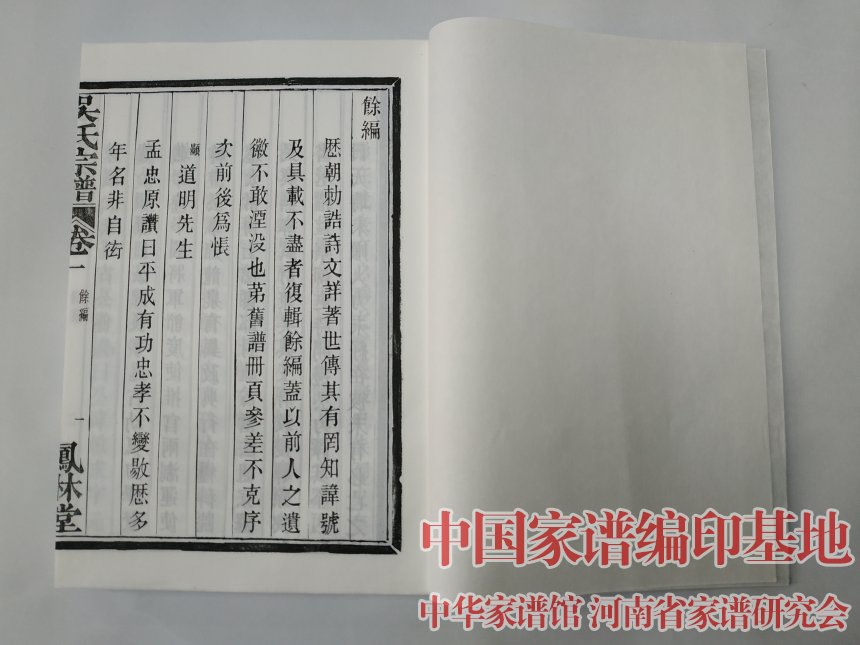 餘編
歷朝勅誥詩文詳著世傳其有罔知諱號
及具載不盡者復輯餘編蓋以前人之遺
徽不敢湮没也苐舊譜冊頁參差不克序
次前後爲悵
顯道明先生
孟忠原讚曰平成有功忠孝不變歇歷多
年名非自衒
吳氏宗譜
卷一
餘編
一
鳳林堂
中国家谱编印基地
中华家谱馆 河南省家谱研究会